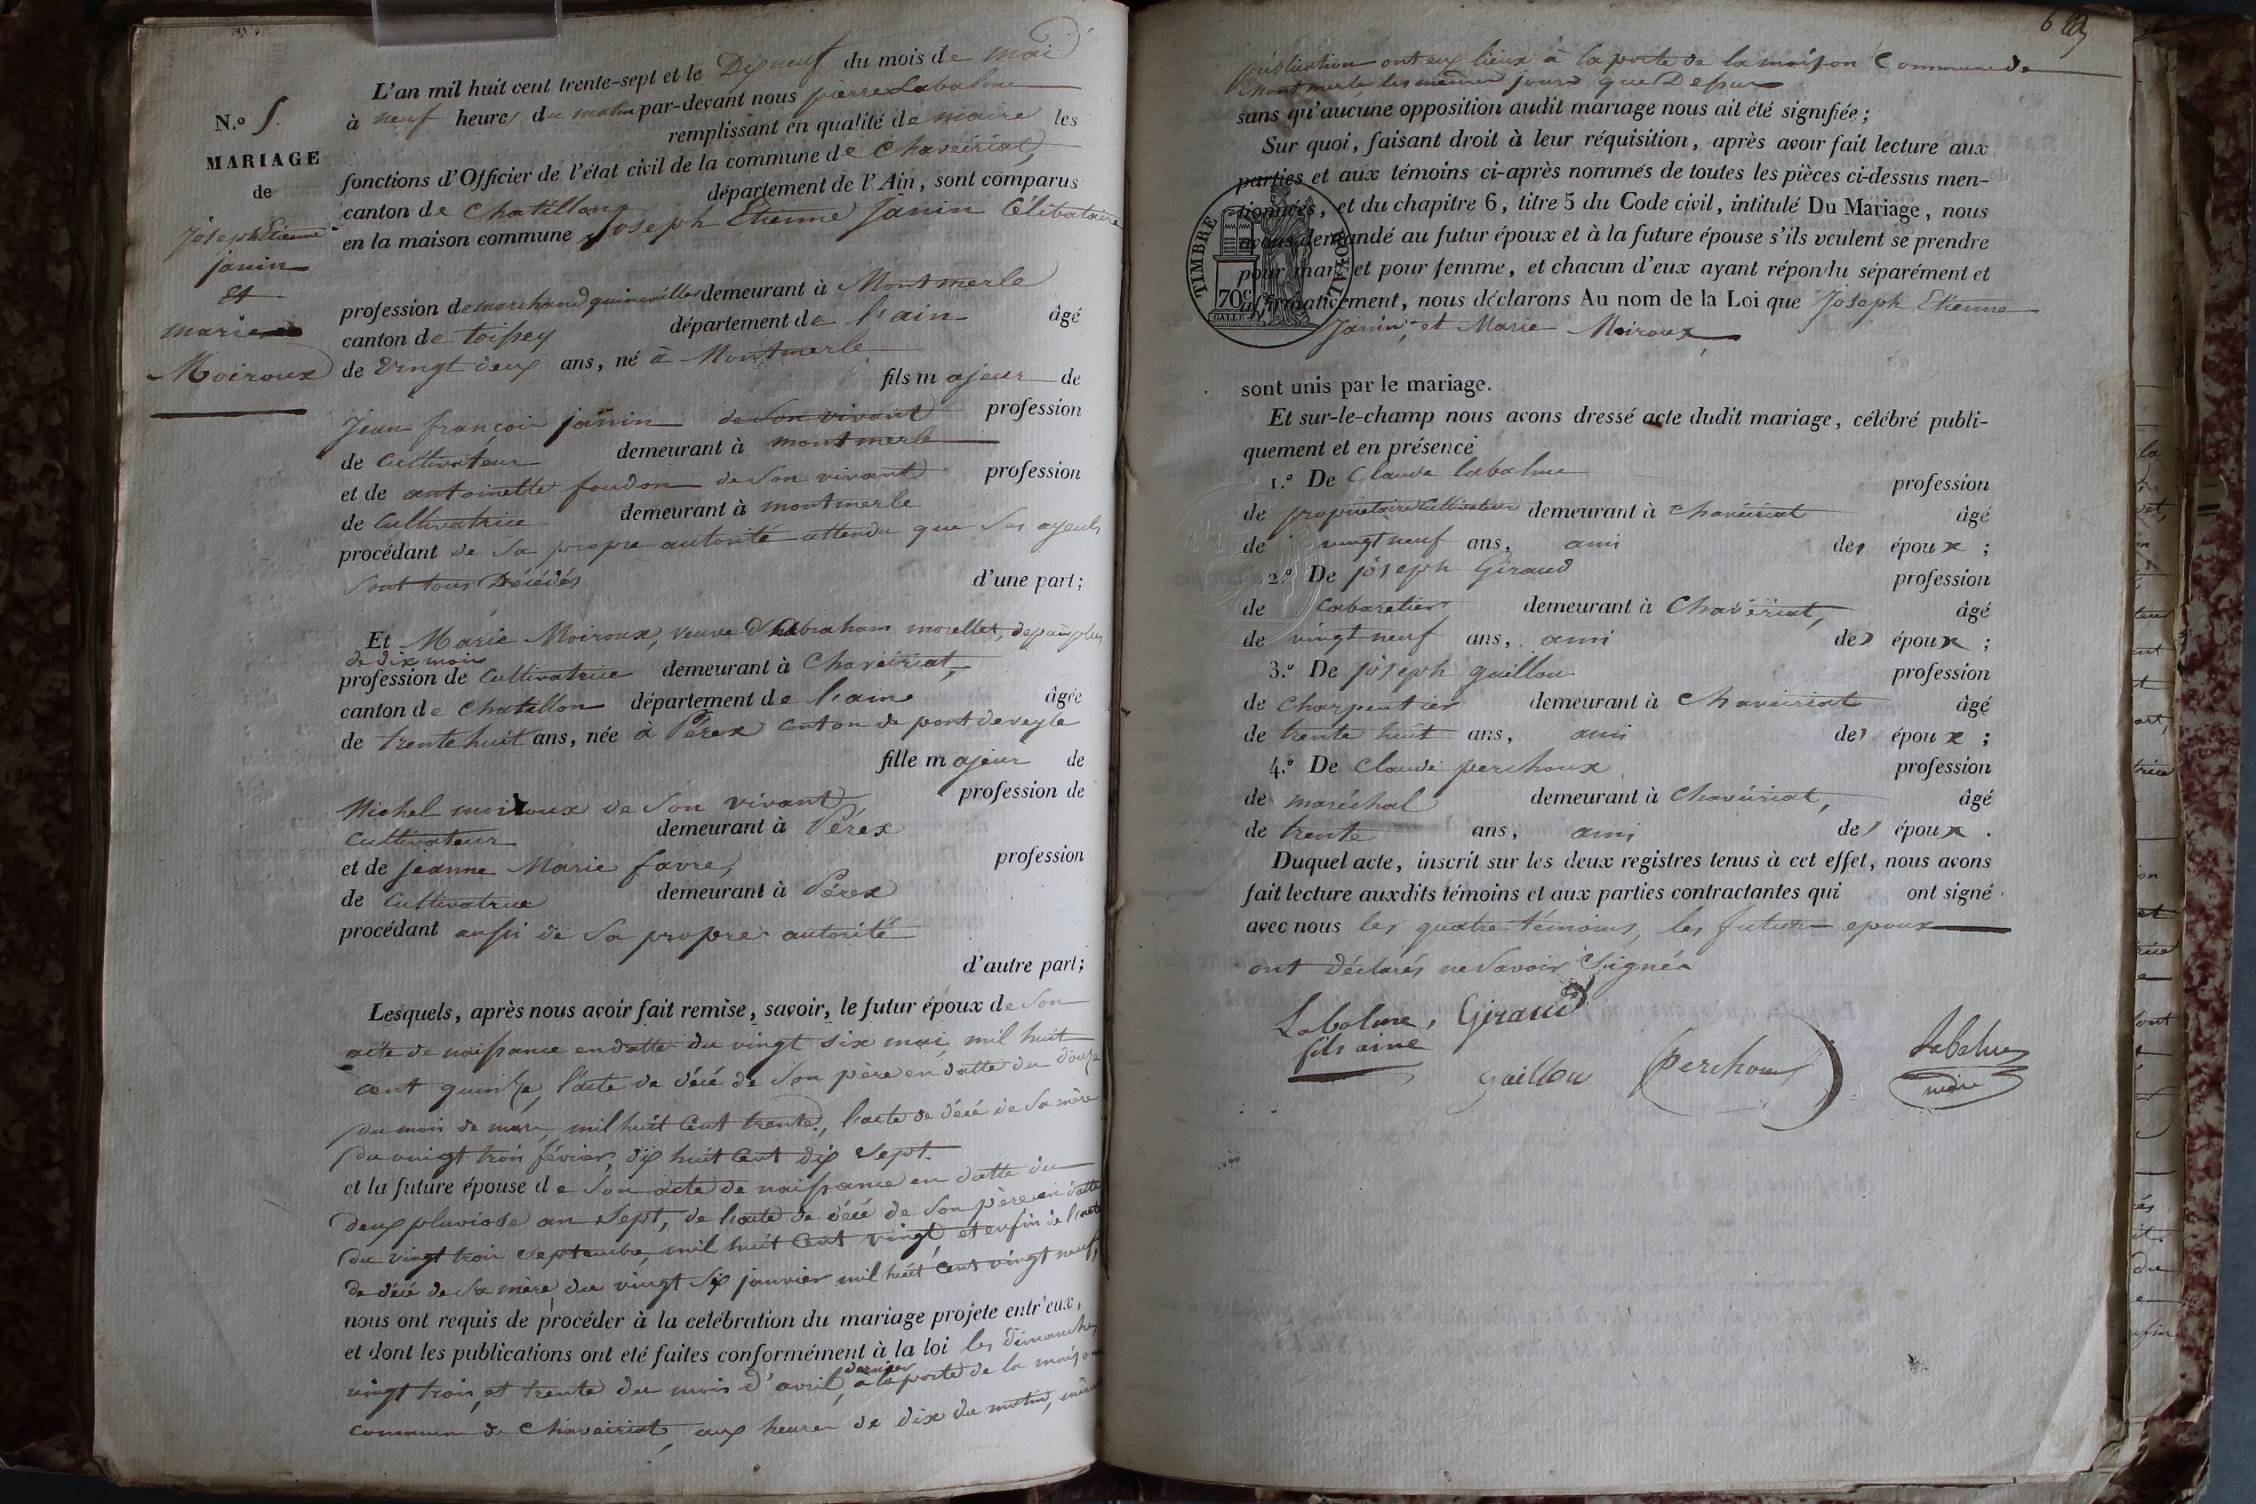 N.o 5.
MARIAGE
de
joseph Etienne
janin
Et
marie
Moiroux
L'an mil huit cent trente-sept et le Dix neuf du mois de mai
à neuf heures du matin par-devant nous pierre Labalme
remplissant en qualité de maire les
fonctions d'Officier de l'état civil de la commune de Chaveiriat,
canton de Chatillon département de l'Ain, sont comparus
en la maison commune Joseph Etienne Janin Célibataire
profession de marchand quincailler demeurant à Montmerle
canton de toissey département de l'ain âgé
de vingt deux ans, né à Montmerle
fils majeur de
Jean françois janin de son vivant profession
de Cultivateur demeurant à montmerle
et de antoinette foudon de son vivant profession
de Cultivatrice demeurant à montmerle
procédant de sa propre autorité attendu que ses ayeuls
sont tous Décédés d'une part;
Et Marie Moiroux, veuve d'abraham morellet, depuis plus
de dix mois
profession de Cultivatrice demeurant à Chaveiriat,
canton de Chatillon département de l'ain âgée
de trente huit ans, née à Pérex canton de pont deveyle
fille majeur de
Michel moiroux de son vivant, profession de
Cultivateur demeurant à Pérex
et de Jeanne Marie favre, profession
de Cultivatrice demeurant à Pérex
procédant aussi de sa propre autorité
d'autre part;
Lesquels, après nous avoir fait remise, savoir, le futur époux de son
acte de naissance en datte du vingt six mai mil huit
cent quinze, l'acte de décé de son père en datte du douze
du mois de mars, mil huit Cent trente, l'acte de décé de sa mère
du vingt trois février, dix huit Cent dix sept.
et la future épouse de son acte de naissance en datte du
deux pluviose an sept, de l'acte de décé de son père en datte
du vingt trois septembre, mil huit Cent vingt et enfin de l'acte
de décé de sa mère du vingt six janvier mil huit Cent vingt neuf,
nous ont requis de procéder à la celébration du mariage projete entr'eux,
et dont les publications ont eté faites conformément à la loi les dimanches
vingt trois, et trente du mois d'avril dernier, à la porte de la maison
commun de Chaveiriat, aux heures de dix du matin, même
publication ont eux lieux à la porte de la maison Commune de
Montmerle les même jours que Dessus
sans qu'aucune opposition audit mariage nous ait été signifiée;
Sur quoi, faisant droit à leur réquisition, après avoir fait lecture aux
parties et aux témoins ci-après nommés de toutes les pièces ci-dessus men-
tionnées, et du chapitre 6, titre 5 du Code civil, intitulé Du Mariage, nous
avons demandé au futur époux et à la future épouse s'ils veulent se prendre
pour mari et pour femme, et chacun d'eux ayant répondu séparément et
affirmativement, nous déclarons Au nom de la Loi que Joseph Etienne
Janin, et Marie Moiroux,
TIMBRE ROYAL
70c
sont unis par le mariage.
Et sur-le-champ nous avons dressé acte dudit mariage, célébré publi-
quement et en présence
1.o De Claude Labalme profession
de propriétaire Cultivateur demeurant à Chaveiriat âgé
de vingt neuf ans, ami des époux;
2.o De joseph Giraud profession
de Cabaretier demeurant à Chaveiriat, âgé
de vingt neuf ans, ami des époux;
3.o De joseph gaillou profession
de Charpentier demeurant à Chaveiriat âgé
de trente huit ans, ami des époux;
4.o De Claude perchoux profession
de maréchal demeurant à Chaveiriat, âgé
de trente ans, ami des époux.
Duquel acte, inscrit sur les deux registres tenus à cet effet, nous avons
fait lecture auxdits témoins et aux parties contractantes qui ont signé
avec nous les quatre témoins, les futurs epoux
ont déclarés ne Savoir Signés
Labalme, Giraud
fils ainé
gaillou perchoux Labalme
maire